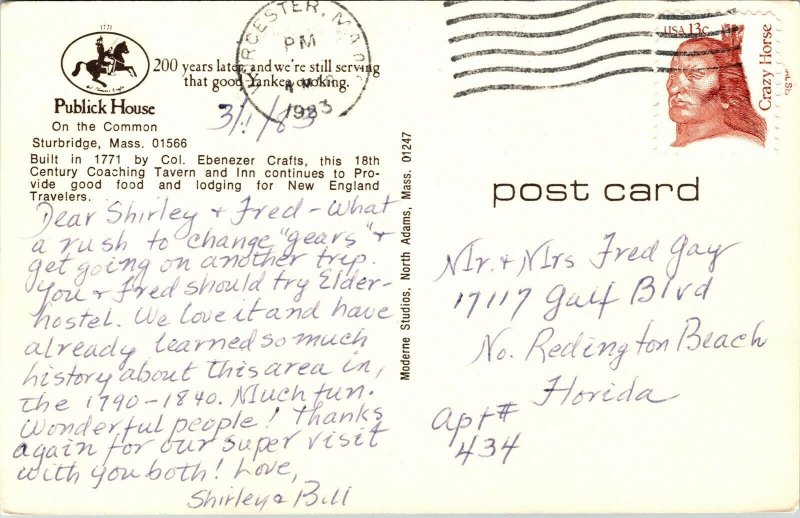 1771
Publick House
On the Common
Sturbridge, Mass. 01566
200 years later, and we're still serving
that good Yankee cooking.
Built in 1771 by Col. Ebenezer Crafts, this 18th
Century Coaching Tavern and Inn continues to Pro-
vide good food and lodging for New England
Travelers.
3/1/83
Dear Shirley & Fred - What
a rush to change "gears" &
get going on another trip.
You & Fred should try Elder-
hostel. We love it and have
already learned so much
history about this area in,
the 1790-1840. Much fun.
Wonderful people! Thanks
again for our super visit
with you both! Love,
Shirley & Bill
Moderne Studios, North Adams, Mass. 01247
WORCESTER, MA
PM
1983
USA 13c
Crazy Horse
post card
Mr. & Mrs Fred Gay
17117 Gulf Blvd
No. Redington Beach
Florida
Apt #
434